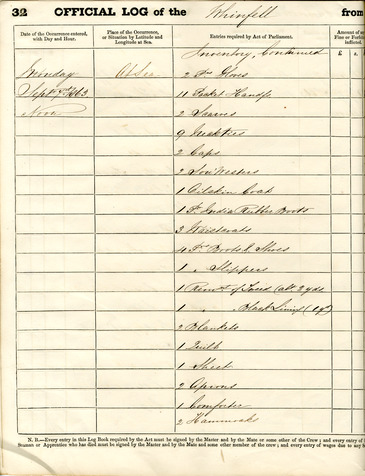 32 OFFICIAL LOG of the Whinfell from
Date of the Occurrence entered, with Day and Hour.
Place of the Occurrence, or Situation by Latitude and Longitude at Sea.
Entries required by Act of Parliament.
Amount of
Fine or
inflicted.
£ s.
Inventory, Continued
At Sea
Sept 7th 1863
Noon
2 Prs Gloves
11 Pocket Handfs
2 Scarves
9 Neckties
2 Caps
2 Sou Westers
1 Oilskin Coat
1 Pr India Rubber Boots
3 Waistcoats
4 Prs Boots & Shoes
1 " Slippers
1 Remt of Tweed (abt 2 yds
1 " Black Lining (1 yd)
2 Blankets
1 Quilt
1 Sheet
2 Aprons
1 Comforter
2 Hammocks
N. B.—Every entry in this Log Book required by the Act must be signed by the Master and by the Mate or some other of the Crew; and every entry of
Seaman or Apprentice who has died must be signed by the Master and by the Mate and some other member of the crew; and every entry of wages due to any